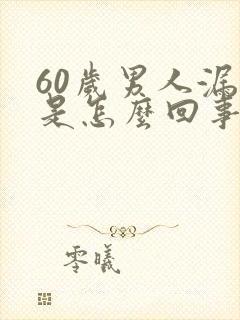 60歲男人漏
是怎麼回事
零曦